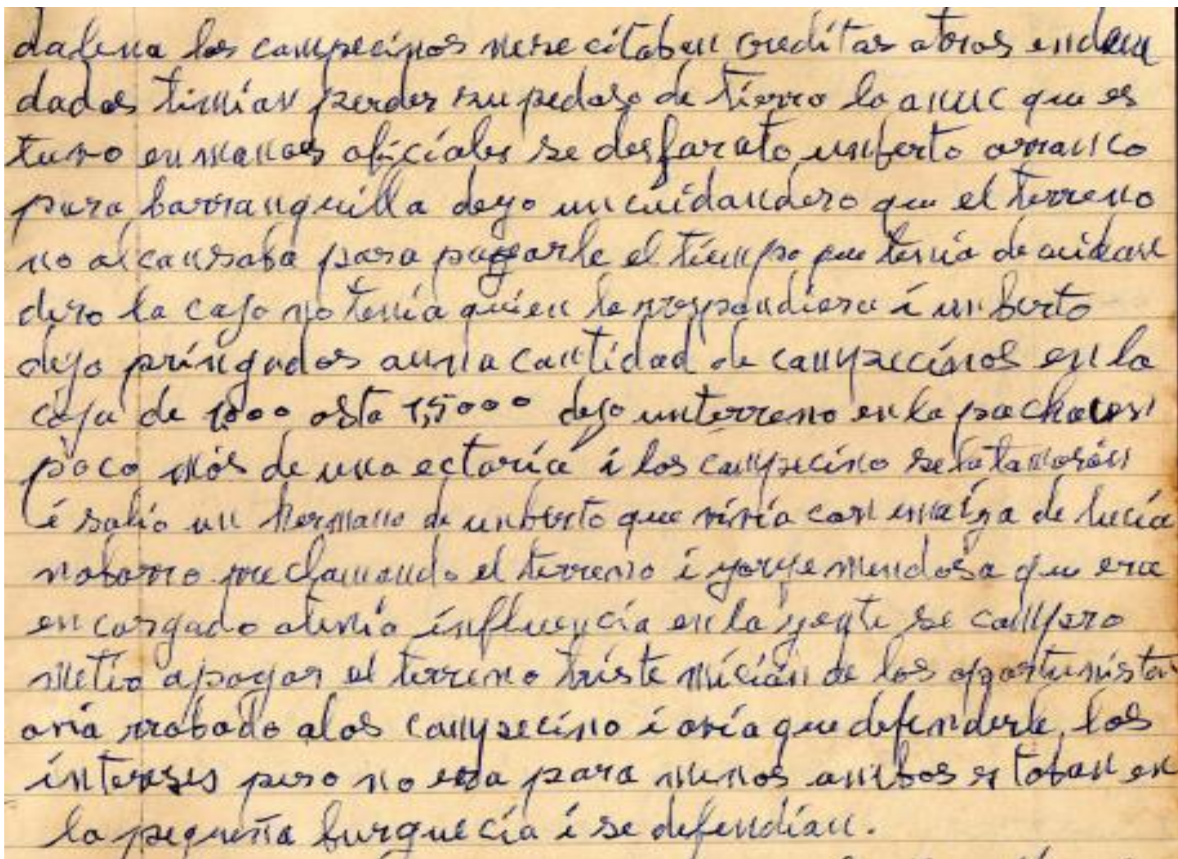 dalena los campecinos nesecitaban creditos otros endeu
dados timian perder su pedaso de tierro la anuc que es
tuvo en manos oficiales se desfarato unberto arranco
para barranquilla dejo un cuidandero que el terreno
no alcansaba para pagarle el tiempo que tenia de cuidan
dero la caja no tenia quien le respondiera i unberto
dejo pringados auna cantidad de campecinos en la
caja de 1000 asta 1,5000 dejo unterreno en la
poco más de una ectaria i los campecino se lo tamarán
i salio un hermano de unberto que vivia con una ija de lucia
nabarro reclamando el terreno i yorje mendosa que era
encargado atenia influencia en la gente se compro
metio apagar el terreno triste mición de los oportunista
avia robado alos campecino i avia que defenderle los
intereses pero no era para menos ambos estaban en
la pequeña burguecia i se defendian.